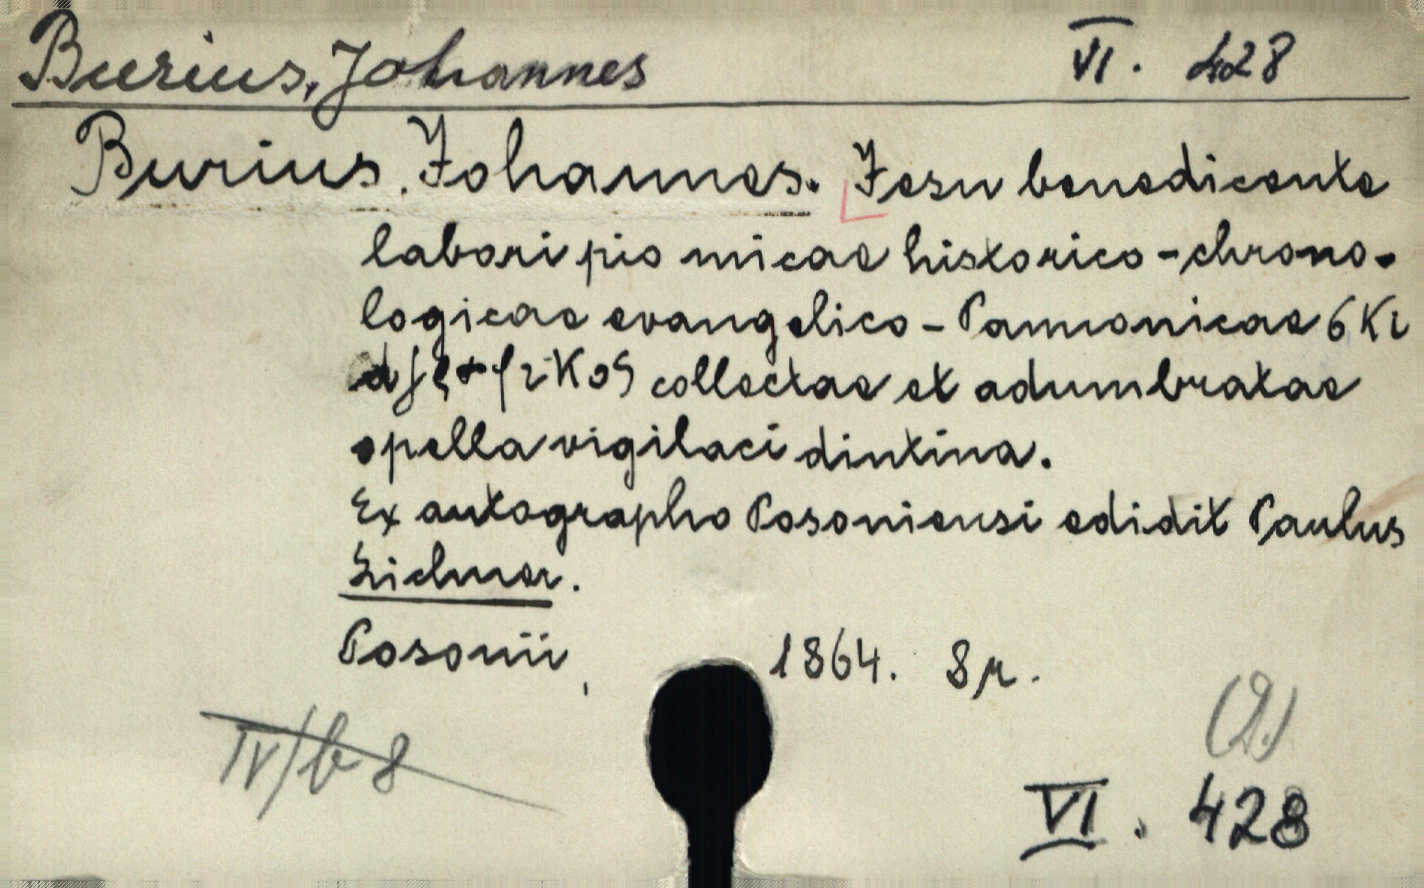 Burius, Johannes VI. 428
Burius, Johannes. Jesu benedicente
labori pio micae historico-chrono-
logicae evangelico-Pannonicae
collectae et adumbratae
opella vigilaci dintina.
Ex autographo Posoniensi edidit Paulus
Lichner.
Posonii, 1864. 8r.
IV/b 8
(2.)
VI. 428